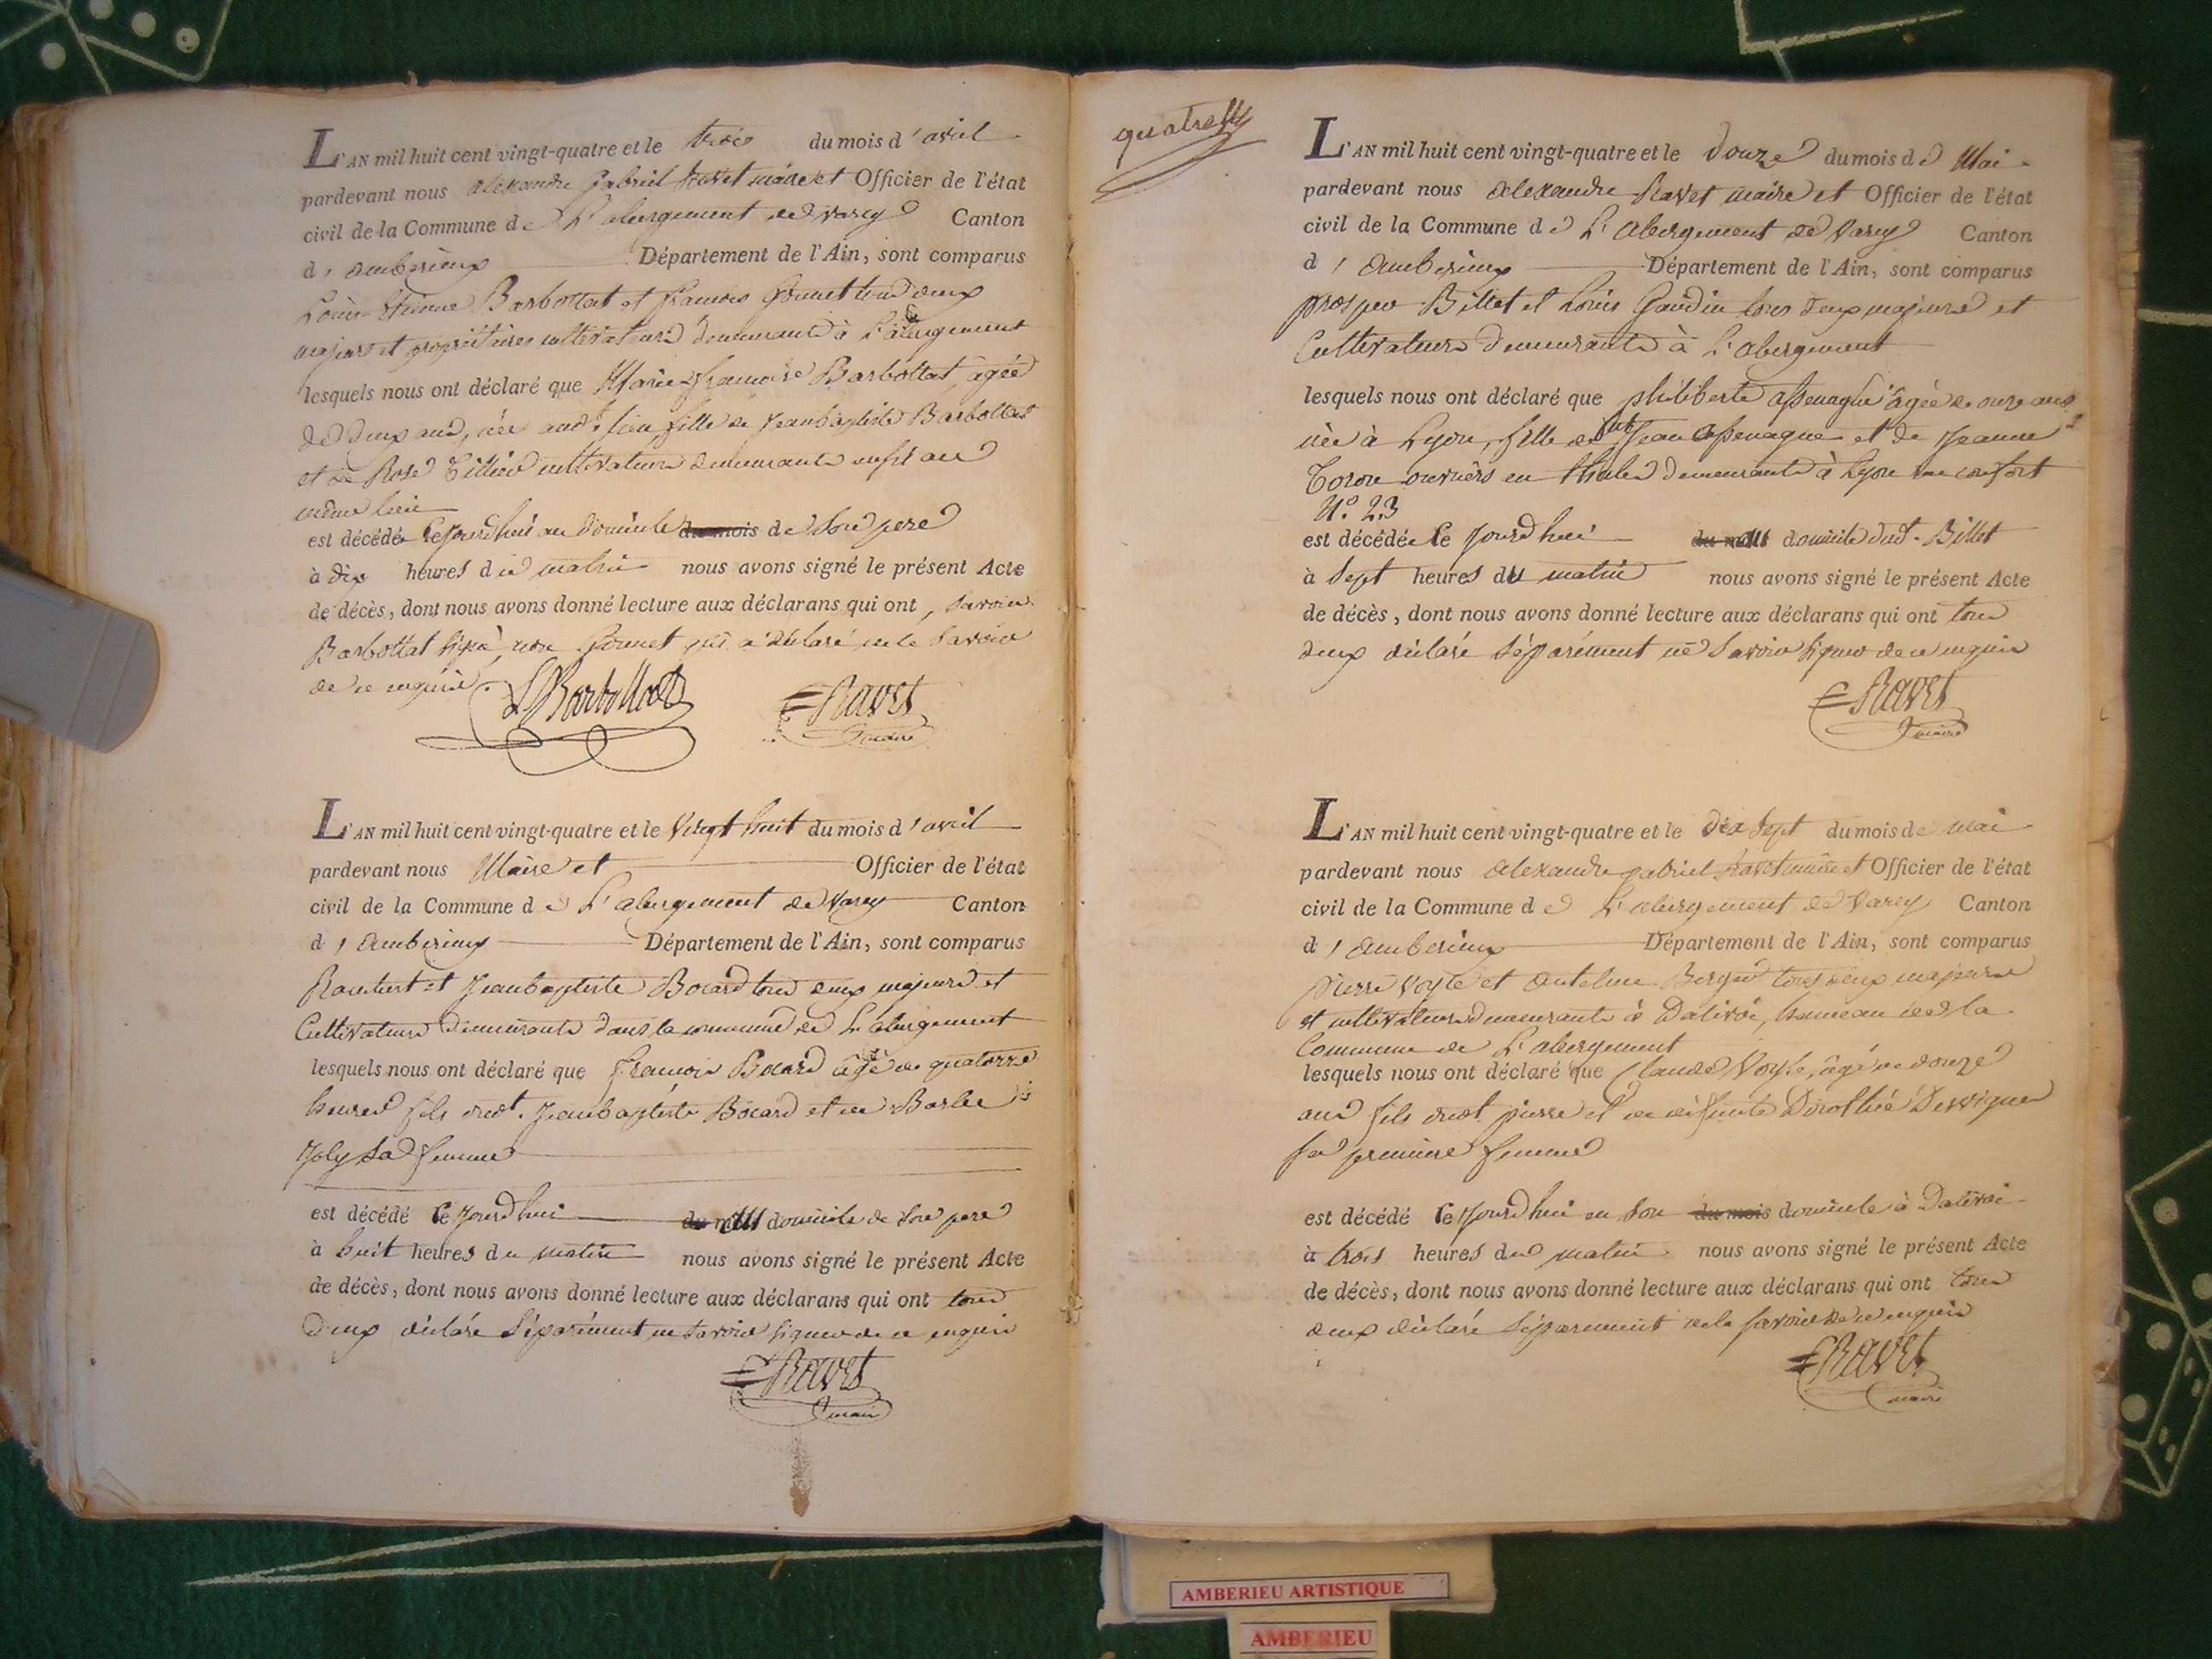 L'AN mil huit cent vingt-quatre et le trois du mois d'avril
pardevant nous alexandre Gabriel Ravet maire et Officier de l'état
civil de la Commune de L'abergement de varey Canton
d'amberieux Département de l'Ain, sont comparus
Louis Etienne Barbollat et francois Gonnet tous deux
majeurs et propriétaires cultivateurs demeurants à L'abergement
lesquels nous ont déclaré que Marie francoise Barbollat, agée
de deux ans, née aud. lieu fille de jean baptiste Barbollat
et de Rose cultivateurs demeurants au
même lieu
est décédée Cejourdhui au domicile du mois de son pere
à dix heures du matin nous avons signé le présent Acte
de décès, dont nous avons donné lecture aux déclarans qui ont, savoir
Barbollat signé, non Gonnet qui a déclaré ne le savoir
de ce enquis. LBarbollat Ravet
maire
L'AN mil huit cent vingt-quatre et le vingt huit du mois d'avril
pardevant nous Maire et Officier de l'état
civil de la Commune de L'abergement de varey Canton
d'amberieux Département de l'Ain, sont comparus
et Jean baptiste Bocard tous deux majeurs et
Cultivateurs demeurants dans la commune de L'abergement
lesquels nous ont déclaré que francois Bocard âgé de quatorze
heures fils dudt. Jean baptiste Bocard et de Barbe
Joly sa femme
est décédé Cejourdhui du mois au domicile de son pere
à huit heures du matin nous avons signé le présent Acte
de décès, dont nous avons donné lecture aux déclarans qui ont tous
deux déclaré séparément ne savoir signer de ce enquis
Ravet
maire
quatre
L'AN mil huit cent vingt-quatre et le douze du mois de Mai
pardevant nous alexandre Ravet maire et Officier de l'état
civil de la Commune de L'abergement de Varey Canton
d'amberieux Département de l'Ain, sont comparus
prosper Billet et Louis Gaudin tous deux majeurs et
Cultivateurs demeurants à L'abergement
lesquels nous ont déclaré que philiberte assenague âgée de onze ans
née à Lyon, fille de jean assenague et de jeanne
ouvriers en demeurants à Lyon rue confort
N.° 23
est décédée Ce jourdhui du mois au domicile dudt. Billet
à sept heures du matin nous avons signé le présent Acte
de décès, dont nous avons donné lecture aux déclarans qui ont tous
deux déclaré séparément ne savoir signer de ce enquis
Ravet
maire
L'AN mil huit cent vingt-quatre et le dix sept du mois de mai
pardevant nous alexandre gabriel Ravet maire et Officier de l'état
civil de la Commune de L'abergement de Varey Canton
d'amberieux Département de l'Ain, sont comparus
pierre Voyle et antelme Berger tous deux majeurs
et cultivateurs demeurants à Dalivoi, hameau de la
Commune de L'abergement
lesquels nous ont déclaré que Claude Voyle, âgé de douze
ans fils dudt. pierre et de défunte Dorothée
sa premiere femme
est décédé Cejourdhui en son du mois domicile à Dalivoi
à trois heures du matin nous avons signé le présent Acte
de décès, dont nous avons donné lecture aux déclarans qui ont tous
deux déclaré séparement ne le savoir de ce enquis
Ravet
maire
AMBERIEU ARTISTIQUE
AMBERIEU